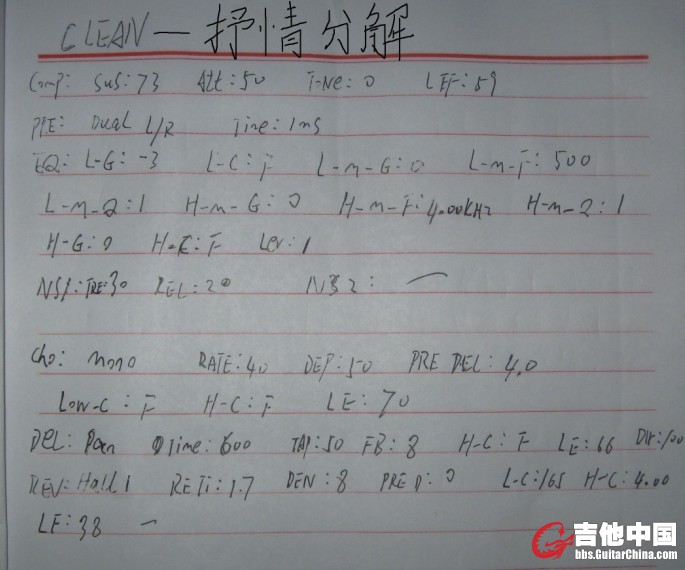 CLEAN — 抒情分解
Comp: SUS: 73 Att: 50 T-Ne: 0 LEF: 59
PRE: Dual L/R Time: 1ms
EQ: L-G: -3 L-C: F L-m-G: 0 L-m-F: 500
L-m-Q: 1 H-m-G: 0 H-m-F: 4.00KHz H-m-Q: 1
H-G: 0 H-C: F Lev: 1
NS1: TRE: 30 REL: 20 NS2: —
Cho: mono RATE: 40 DEP: 50 PRE DEL: 4.0
Low-C: F H-C: F LE: 70
DEL: Pan Time: 600 TAP: 50 FB: 8 H-C: F LE: 66 Dir: 100
REV: Hall 1 RETi: 1.7 DEN: 8 PRE D: 0 L-C: 165 H-C: 4.00
LE: 38 —
吉他中国
bbs.GuitarChina.com